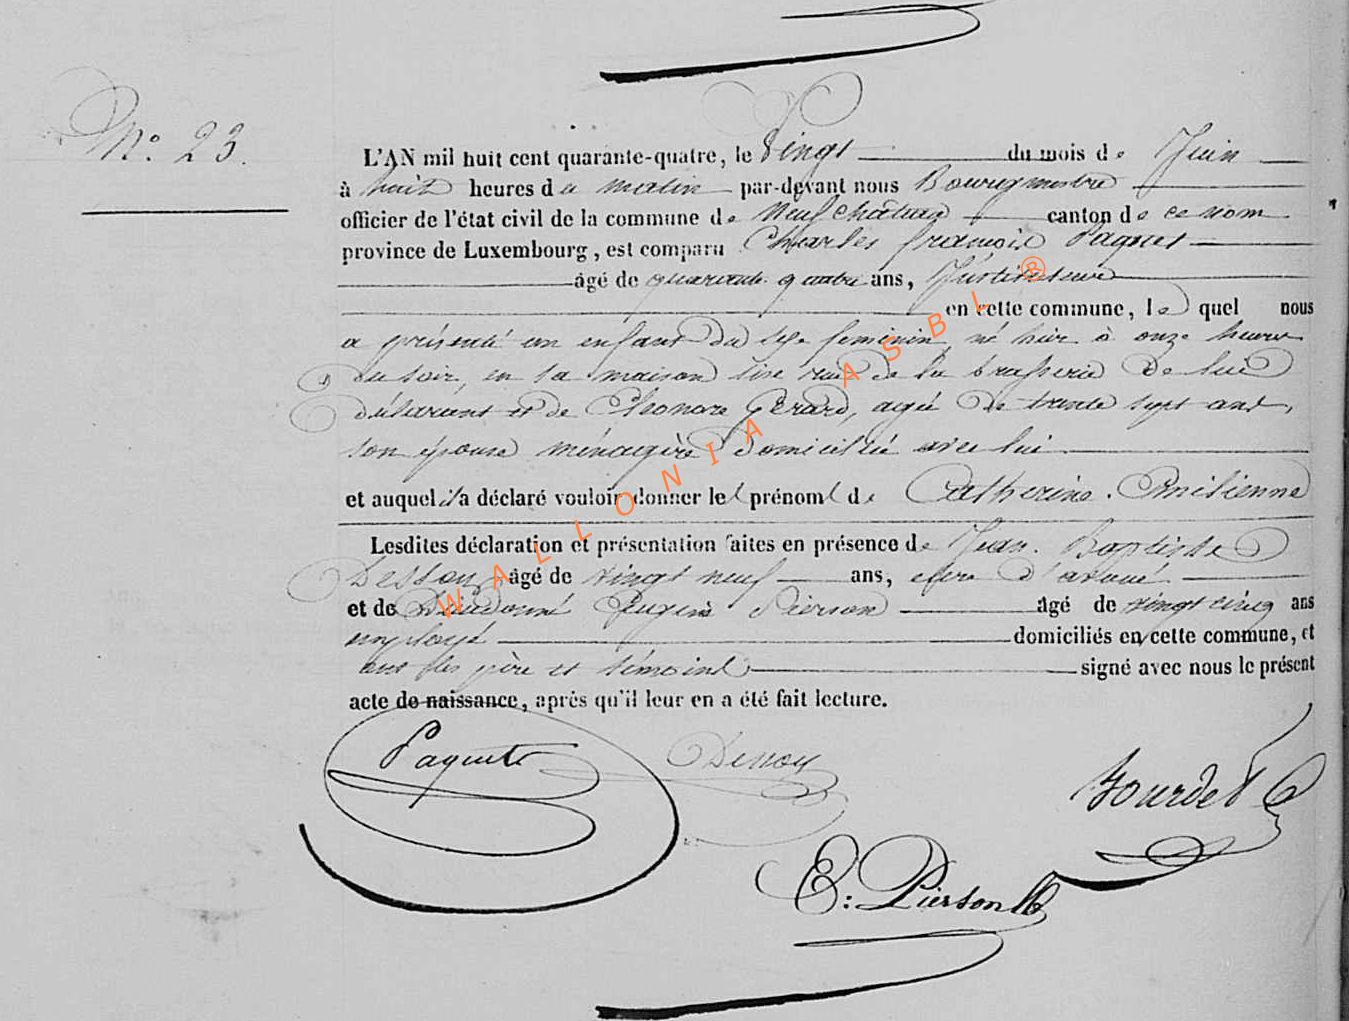 No. 23.
L'AN mil huit cent quarante-quatre, le Vingt du mois de Juin
à huit heures du matin par-devant nous Bourgmestre
officier de l'état civil de la commune de Neufchâteau canton de ce nom
province de Luxembourg, est comparu Charles françois Paquet
âgé de quarante quatre ans, Instituteur
en cette commune, lequel nous
a présenté un enfant du sexe feminin, né hier à onze heures
du soir, en sa maison sise rue de la brasserie de lui
déclarant et de Eleonore Gérard, agée de trente sept ans,
son épouse ménagère domiciliée avec lui
et auquel il a déclaré vouloir donner les prénoms de Catherine. Emilienne
Lesdites déclaration et présentation faites en présence de Jean. Baptiste
âgé de vingt neuf ans, clerc d'avoué
et de Dieudonné Eugène Pierson âgé de vingt cinq ans
employé domiciliés en cette commune, et
ont les père et témoins signé avec nous le présent
acte de naissance, après qu'il leur en a été fait lecture.
Paquet
Bourdet
E: Pierson
WALLONIA ASBL ®